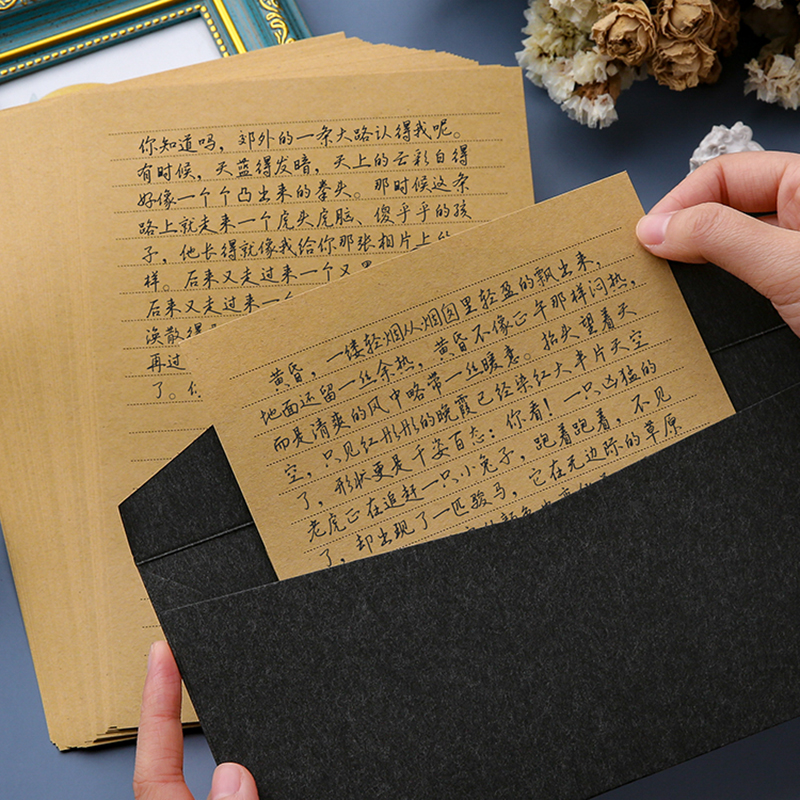 你知道吗，郊外的一条大路认得我呢。
有时候，天蓝得发暗，天上的云彩白得
好像一个个凸出来的拳头。那时候这条
路上就走来一个虎头虎脑、傻乎乎的孩
子，他长得就像我给你那张相片上的
样。后来又走过来一个又
后来又走过来一个
涣散得
再过
了。
黄昏，一缕轻烟从烟囱里轻盈的飘出来，
地面还留一丝余热，黄昏不像正午那样闷热，
而是清爽的风中略带一丝暖意。抬头望着天
空，只见红彤彤的晚霞已经染红大半片天空
了，形状更是千姿百态：你看！一只凶猛的
老虎正在追赶一只小兔子，跑着跑着，不见
了，却出现了一匹骏马，它在无边际的草原